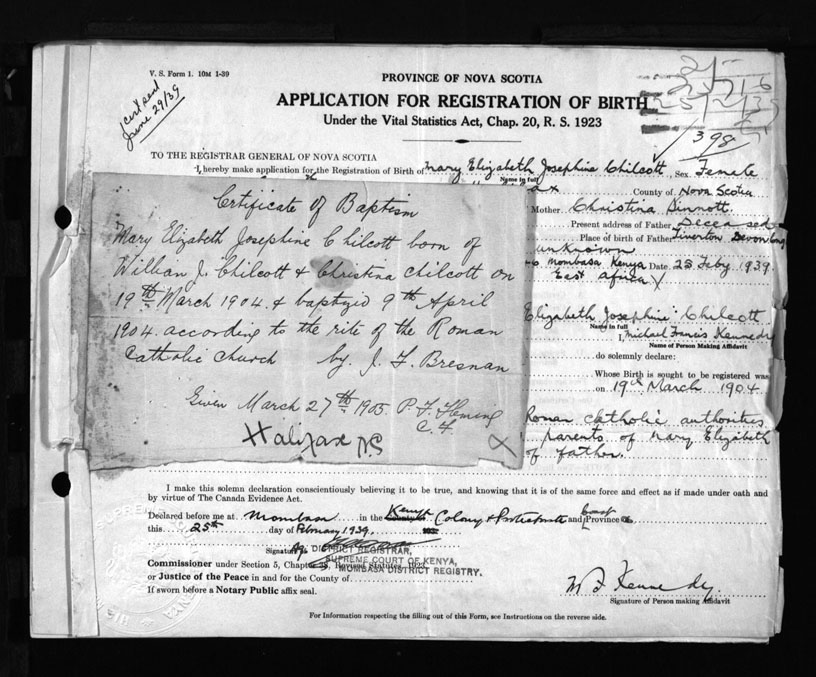 V. S. Form 1. 10M 1-39
Cert sent
June 29/39
PROVINCE OF NOVA SCOTIA
APPLICATION FOR REGISTRATION OF BIRTH
Under the Vital Statistics Act, Chap. 20, R. S. 1923
398
TO THE REGISTRAR GENERAL OF NOVA SCOTIA
I, hereby make application for the Registration of Birth of Mary Elizabeth Josephine Chilcott Sex Female
Name in full
County of Nova Scotia
Mother Christina Sinnott
Present address of Father Deceased
Place of birth of Father Tiverton Devon
unknown
Mombasa Kenya Date 25 Feby 1939
East Africa
Certificate of Baptism
Mary Elizabeth Josephine Chilcott born of
William J. Chilcott & Christina Chilcott on
19th March 1904 & baptized 9th April
1904 according to the rite of the Roman
Catholic Church by J. F. Bresnan
Given March 27th 1905 P. F. Fleming
C. F.
Halifax N S
Elizabeth Josephine Chilcott
Name in full
I, Michael Francis Kennedy
Name of Person Making Affidavit
do solemnly declare:
Whose Birth is sought to be registered was
on 19th March 1904
Roman Catholic authorities
parents of Mary Elizabeth
of father.
I make this solemn declaration conscientiously believing it to be true, and knowing that it is of the same force and effect as if made under oath and
by virtue of The Canada Evidence Act.
Declared before me at Mombasa in the Kenya Colony & Protectorate and Province
this 25th day of February 1939.
Signature Ag
DISTRICT REGISTRAR,
SUPREME COURT OF KENYA,
MOMBASA DISTRICT REGISTRY.
Commissioner under Section 5, Chapter Revised Statutes, 1923
or Justice of the Peace in and for the County of
If sworn before a Notary Public affix seal.
M F Kennedy
Signature of Person making Affidavit
For Information respecting the filling out of this Form, see Instructions on the reverse side.